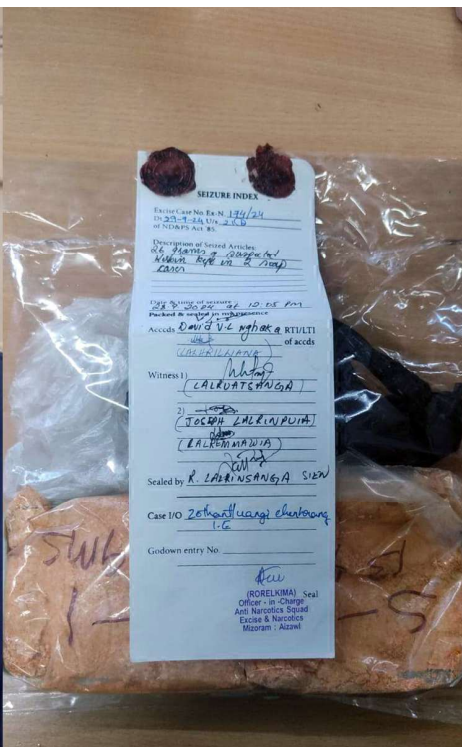 SEIZURE INDEX
Excise Case No. Ex-N. 174/24
Dt. 29-9-24 U/s
of ND&PS Act '85.
Description of Seized Articles:
26 grams of suspected
Heroin kept in 2 soap
cases
Date & time of seizure
28.9.2024 at 12:05 pm
Packed & sealed in my presence
Accds David V.L Nghaka RTI/LTI
of accds
Witness 1)
(LALRUATSANGA)
2)
(JOSEPH LALRINPUIA)
(RALREMMAWIA)
Sealed by R. LALRINSANGA
Case I/O
Godown entry No.
(RORELKIMA) Seal
Officer - in -Charge
Anti Narcotics Squad
Excise & Narcotics
Mizoram : Aizawl